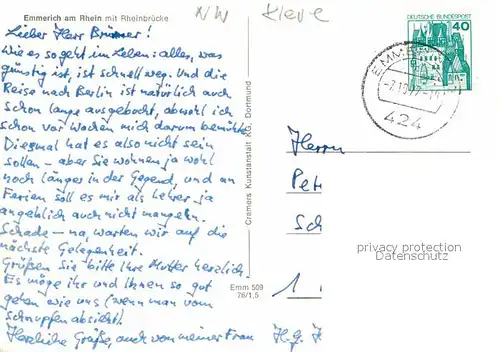 Emmerich am Rhein mit Rheinbrücke
NW Kleve
Lieber Herr Brünner!
Wie es so geht im Leben: alles, was
günstig ist, ist schnell weg. Und die
Reise nach Berlin ist natürlich auch
schon lange ausgebucht, obwohl ich
schon vor Wochen mich darum bemühte.
Diesmal hat es also nicht sein
sollen – aber Sie wohnen ja wohl
noch länger in der Gegend, und an
Ferien soll es mir als Lehrer ja
angeblich auch nicht mangeln.
Schade – na, warten wir auf die
nächste Gelegenheit.
Grüßen Sie bitte Ihre Mutter herzlich.
Es möge ihr und Ihnen so gut
gehen wie uns (wenn man vom
Schnupfen absieht).
Herzliche Grüße, auch von meiner Frau
H.G.
Cremers Kunstanstalt KG, Dortmund
Emm 509
76/1,5
DEUTSCHE BUNDESPOST
40
EMME
424
Herrn
Pet
Sch
1
privacy protection
Datenschutz